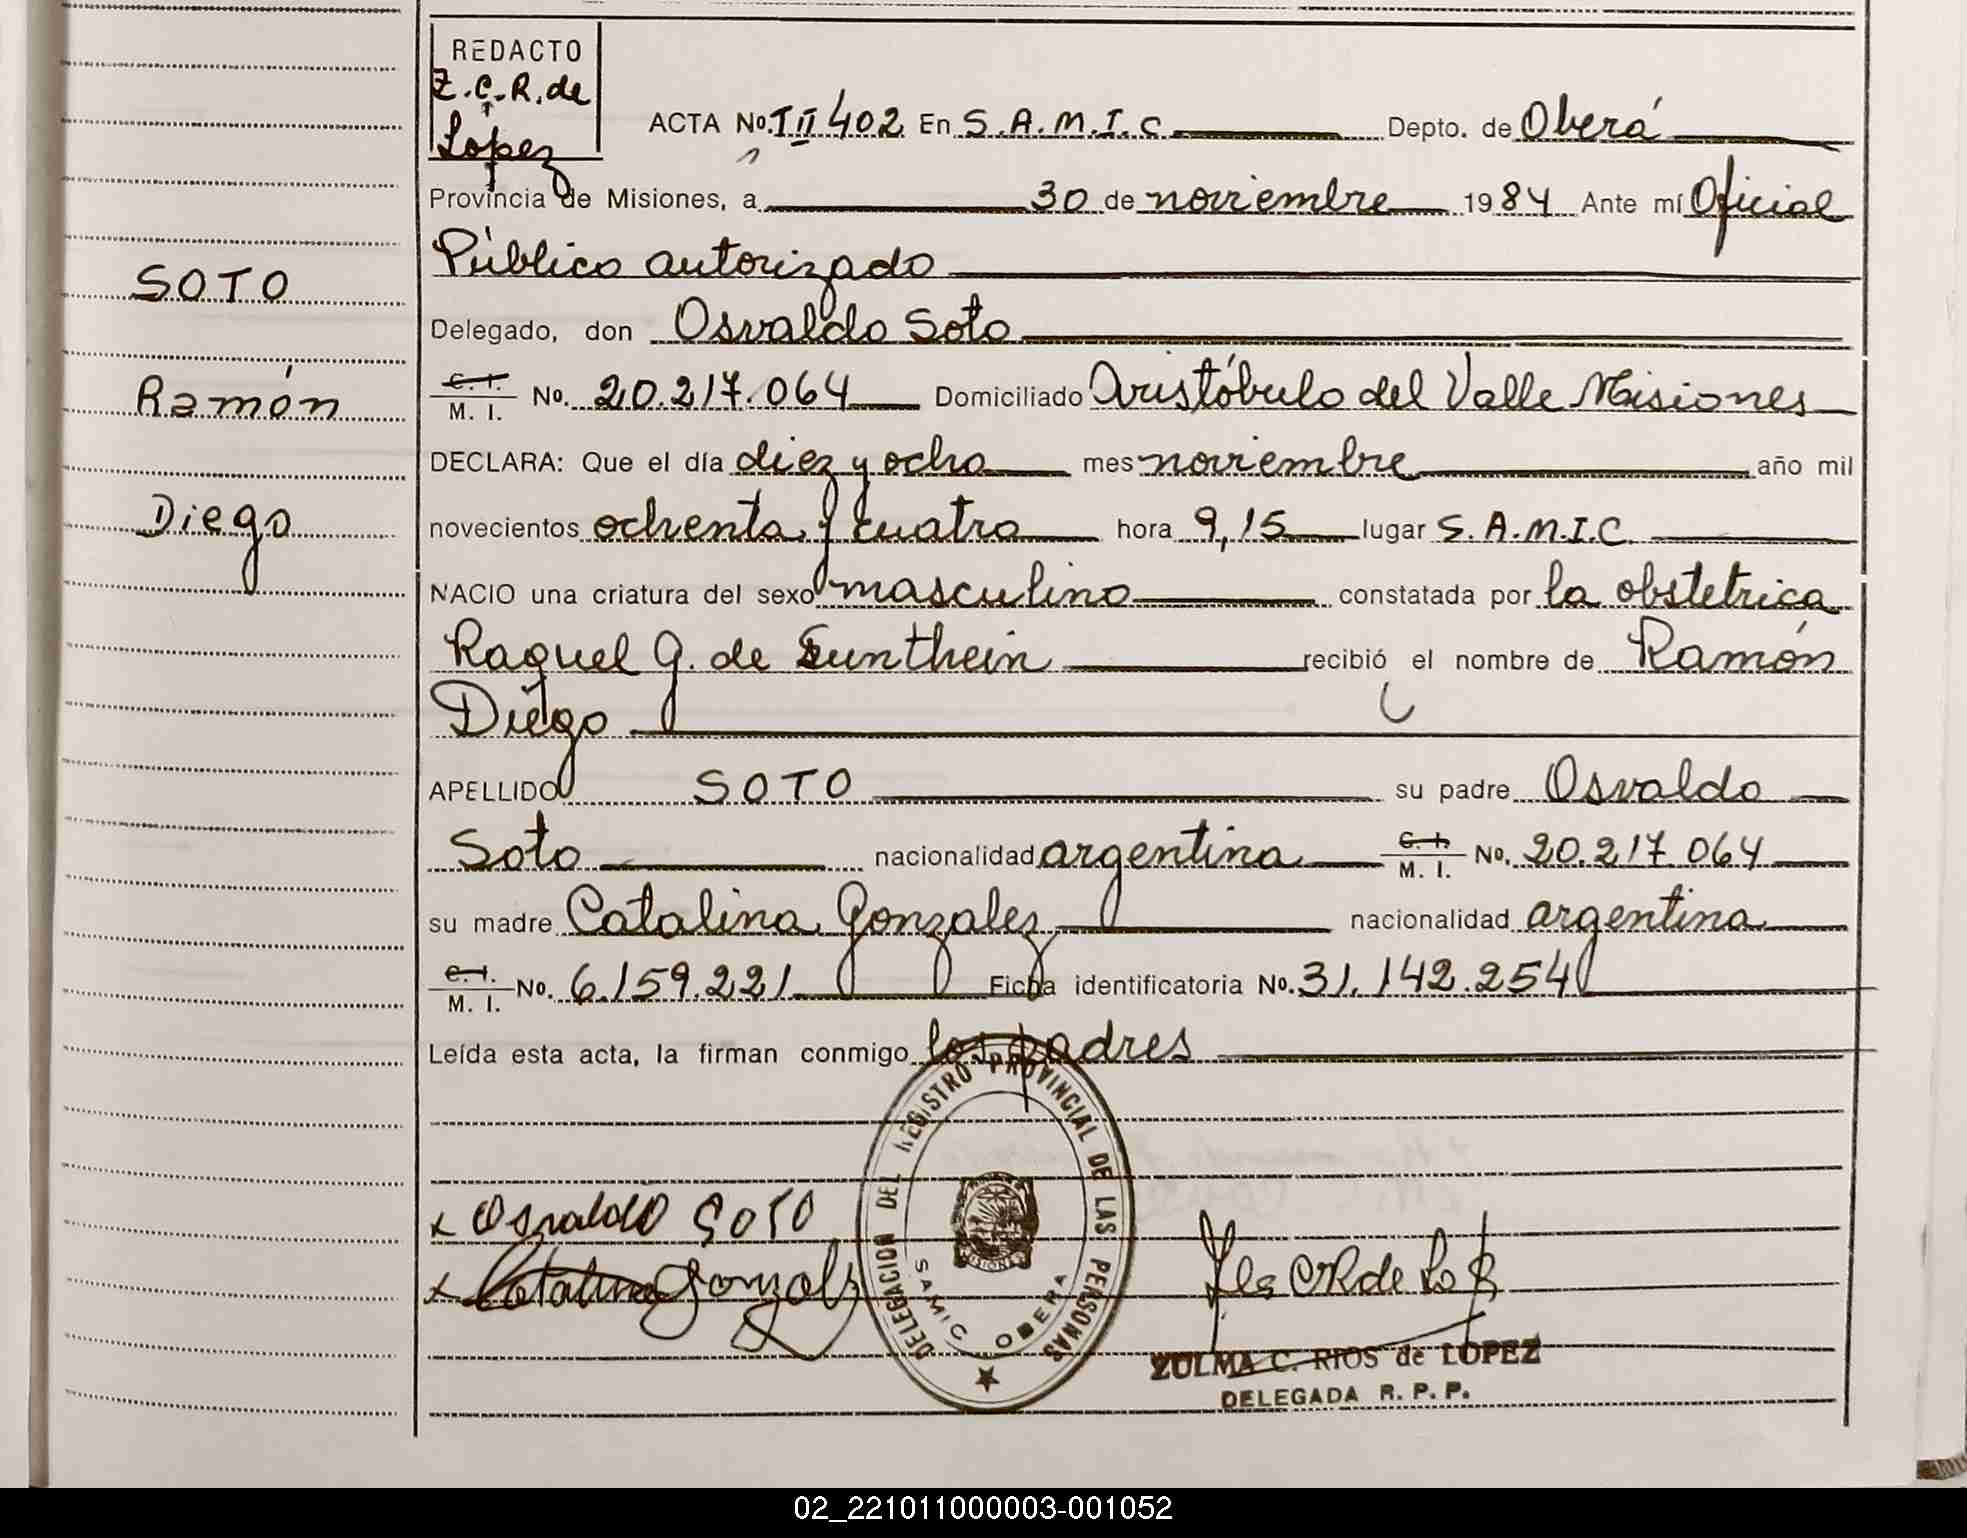 REDACTO
Z.C.R. de
López
ACTA No. T II 402 En S.A.M.I.C. Depto. de Oberá
Provincia de Misiones, a 30 de noviembre 1984 Ante mí Oficial
Público autorizado
Delegado, don Osvaldo Soto
C. I. M. I. No. 20.217.064 Domiciliado Aristóbulo del Valle Misiones
DECLARA: Que el día diez y ocho mes noviembre año mil
novecientos ochenta y cuatro hora 9,15 lugar S.A.M.I.C.
NACIO una criatura del sexo masculino constatada por la obstetrica
Raquel G. de Sunthein recibió el nombre de Ramón
Diego
APELLIDO SOTO su padre Osvaldo
Soto nacionalidad argentina C. I. M. I. No. 20.217.064
su madre Catalina Gonzalez nacionalidad argentina
C. I. M. I. No. 6.159.221 Ficha identificatoria No. 31.142.254
Leída esta acta, la firman conmigo los padres
SOTO
Ramón
Diego
x Osvaldo SOTO
x Catalina Gonzalz
DELEGACION DEL REGISTRO PROVINCIAL DE LAS PERSONAS
MISIONES
SAMIC OBERA
ZULMA C. RIOS de LOPEZ
DELEGADA R. P. P.
02_221011000003-001052